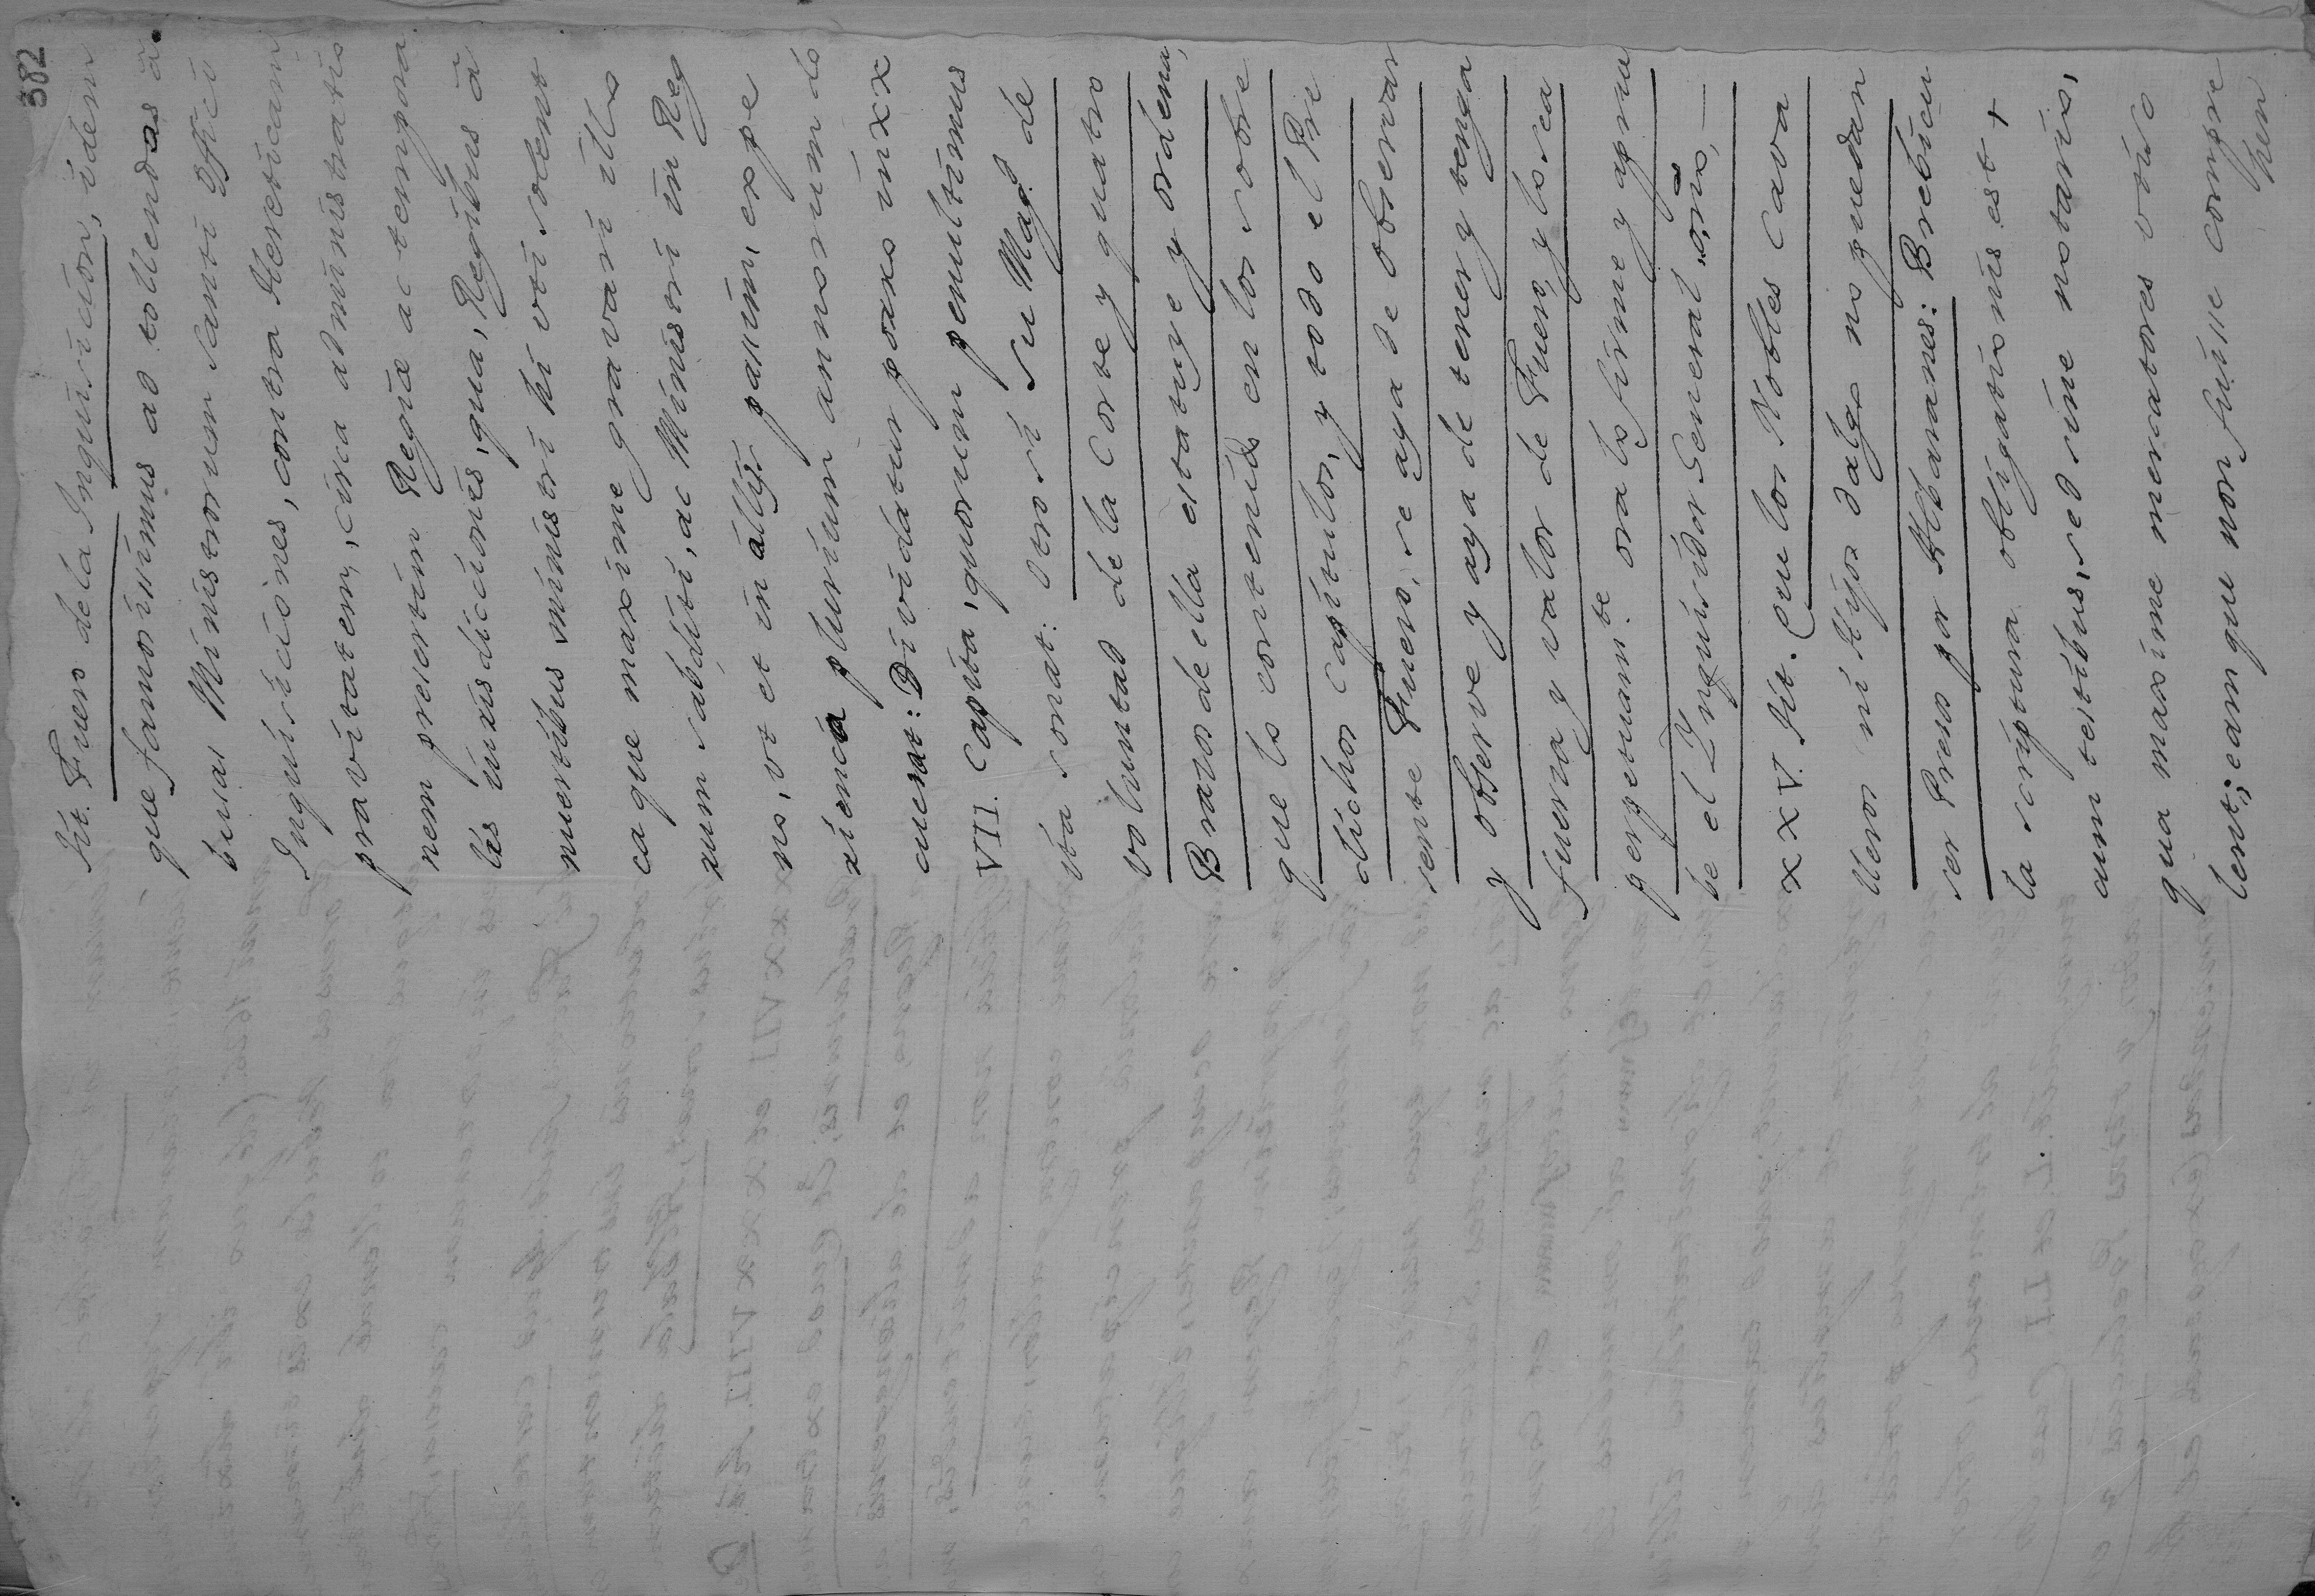 382
tit. Fuero de la Inquisicion, idem
que famosissimus ad tollendas a
busus Ministrorum santi Officii
Inquisiciones, contra Hereticam
pravitatem, circa administratio
nem presertim Regiæ ac tempora
lis iurisdicionis, qua, Regibus a
nuentibus, ministri hi vti solent
ca que maxime gravari illo
rum subditi, ac Ministri in Reg
no, vt et in allijs passim, expe
riencia plurium annorum do
cuerat: Dividatur foxus in xx
VII. capita, quorum penultimus
ita sonat: otro si su Mag.d de
voluntad de la Corte y quatro
Brazos de ella estatuye y ordena,
que lo contenido en los sobre
dichos capitulos, y todo el Pre
sente Fuero, se aya de observar
y observe y aya de tener y tenga
fuerza y valor de Fuero, y lo sea
perpetuam.te ora lo firme y aprue
be el Inquisidor General, o no, —
XXV. tit. Que los Nobles Cava
lleros ni Hijos dalgo no puedan
ser Presos por Albaranes: Brebicu
la scriptura obligationis est +
cum testibus, sed sine notario,
qua maxime mercatores vti so
lent; eam que non fuisse compre
hen